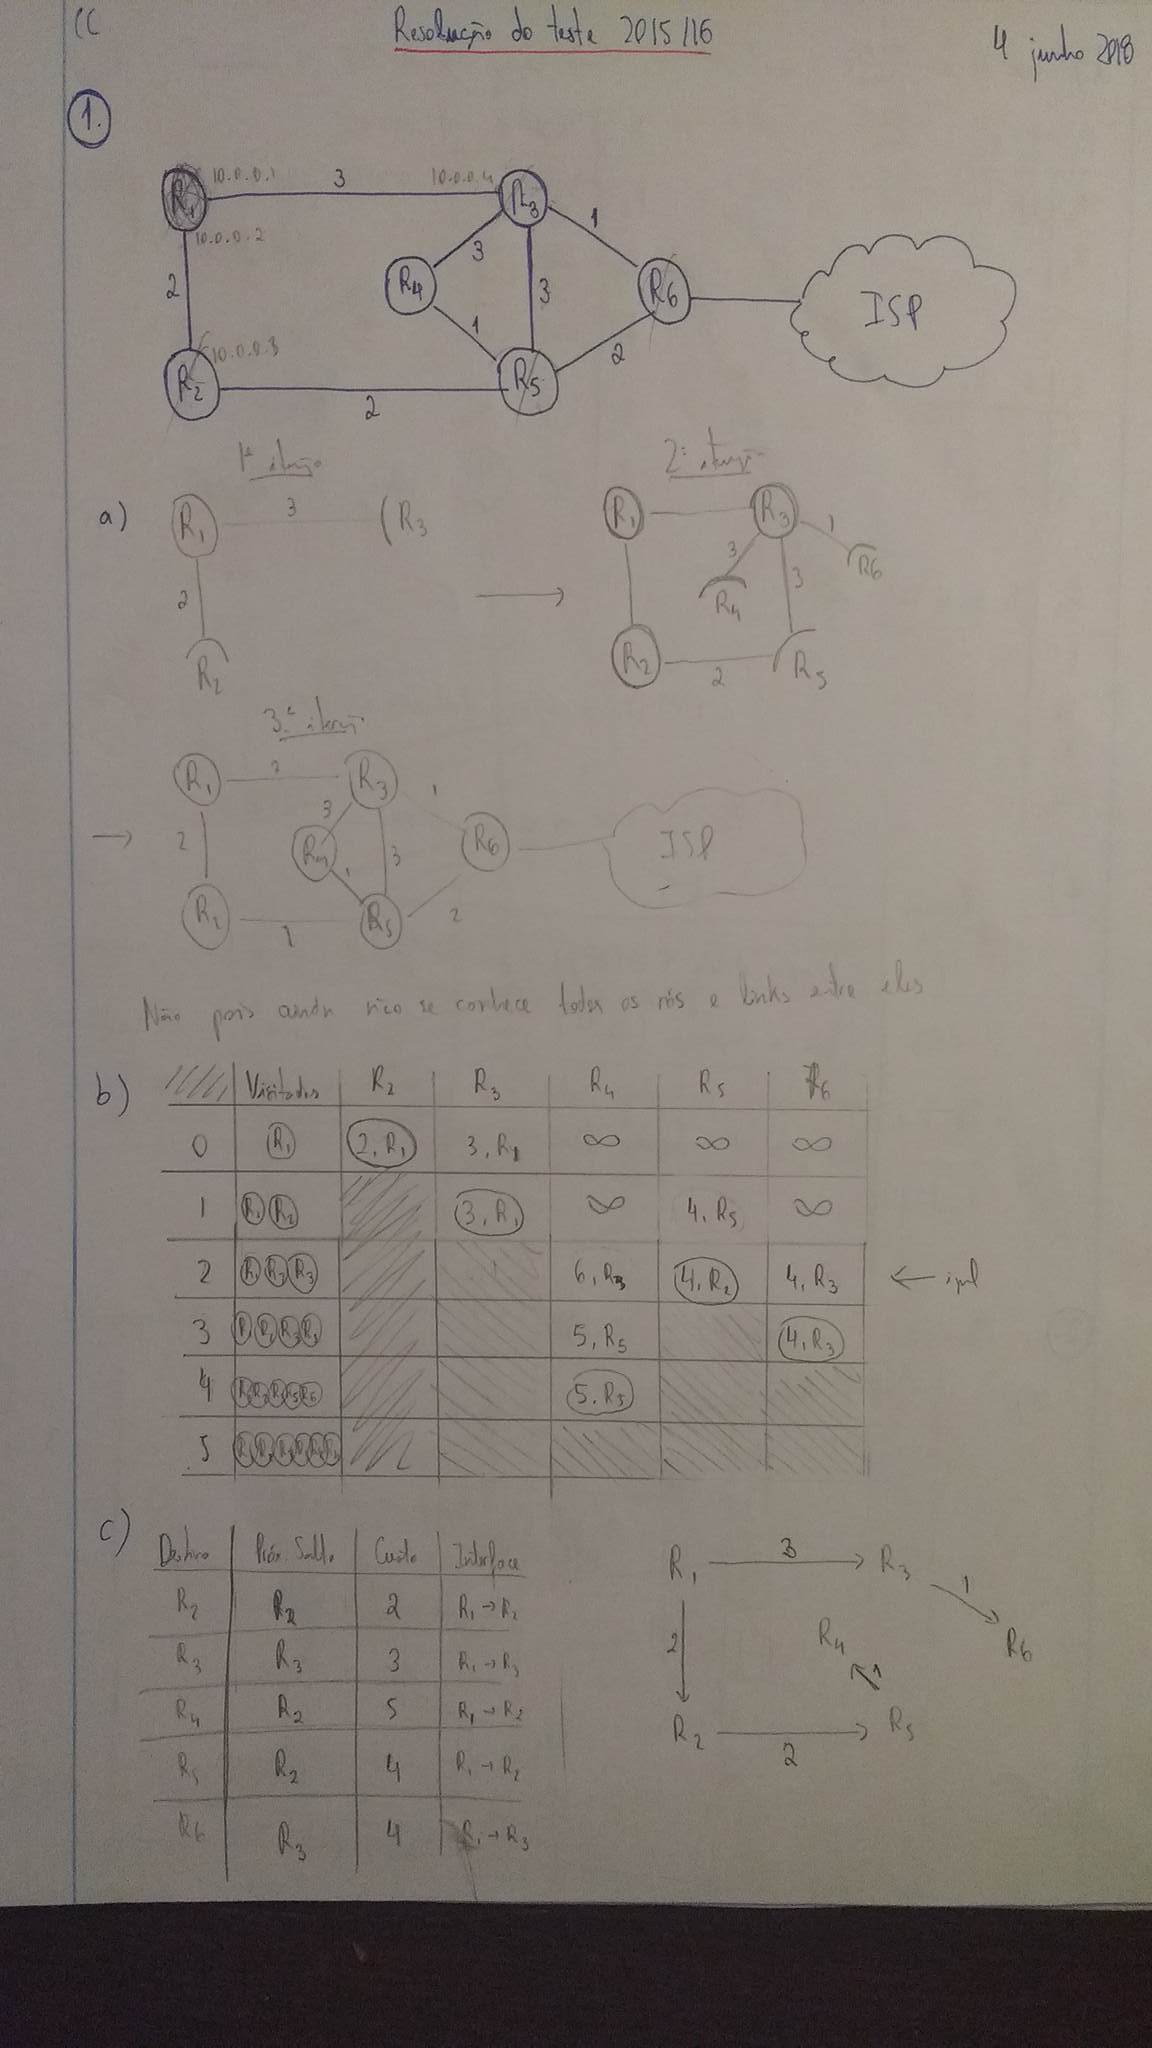 CC
Resolução do teste 2015/16
4 junho 2018
1.
R1 10.0.0.1 3 10.0.0.4 R3
10.0.0.2
1
2 R4 3 3 R6 ISP
1 2
R2 10.0.0.3 R5
2
1ª iteração 2ª iteração
a) R1 3 R3
R1 R3 1
3 3 R6
2 R4
R2 R2 2 R5
3ª iteração
R1 R3 1
2 3 3 R6 ISP
R4 1
R2 R5 2
Não pois ainda não se conhece todos os nós e links entre eles
b) Visitados R2 R3 R4 R5 R6
0 R1 2,R1 3,R1 ∞ ∞ ∞
1 R1 R2 3,R1 ∞ 4,R5 ∞
2 R1 R2 R3 6,R3 4,R2 4,R3 ← igual
3 5,R5 4,R3
4 5,R5
5
c) Destino Próx. Salto Custo Interface
R2 R2 2 R1→R2
R3 R3 3 R1→R3
R4 R2 5 R1→R2
R5 R2 4 R1→R2
R6 R3 4 R1→R3
R1 3 R3
1
2 R4 R6
1
R2 2 R5